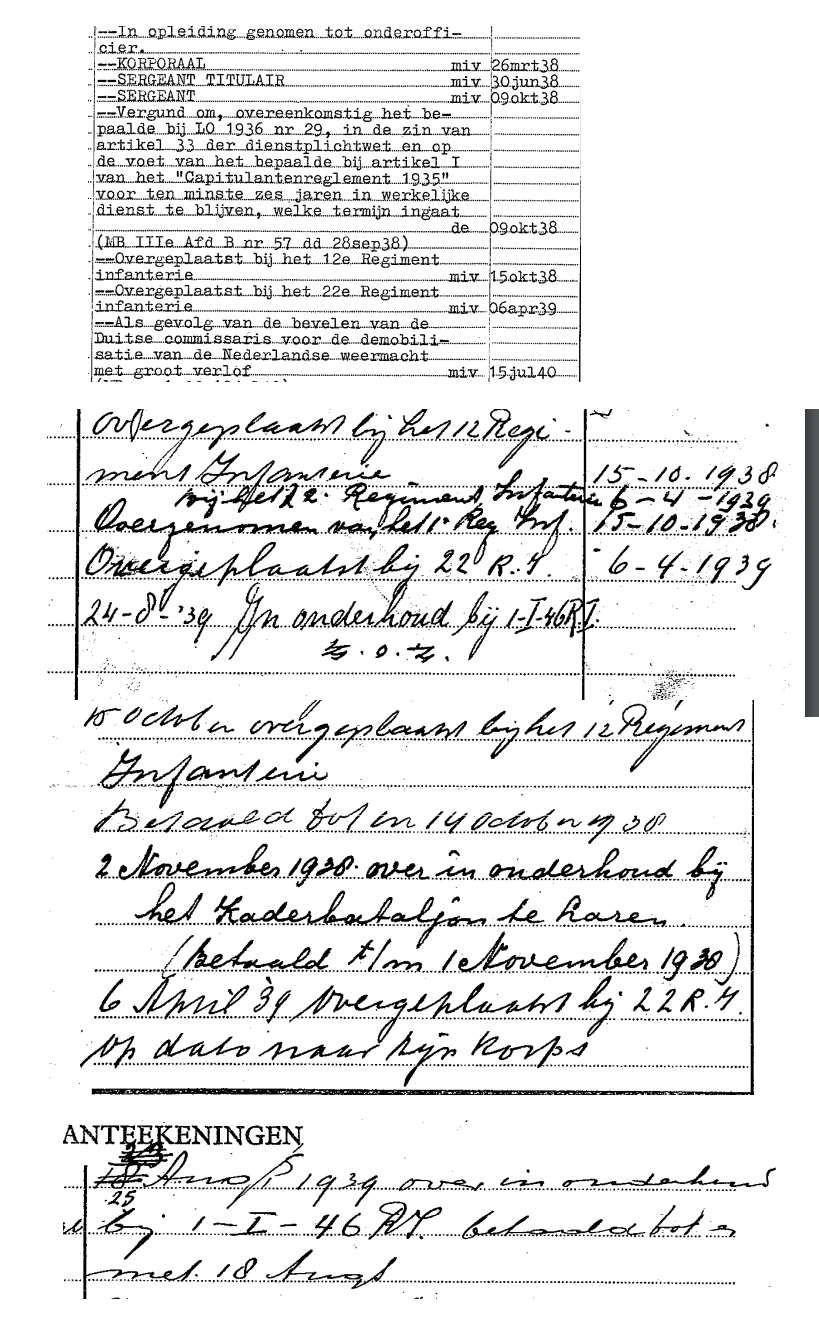 --In opleiding genomen tot onderoffi-
cier.
--KORPORAAL miv 26mrt38
--SERGEANT TITULAIR miv 30jun38
--SERGEANT miv 09okt38
--Vergund om, overeenkomstig het be-
paalde bij LO 1936 nr 29, in de zin van
artikel 33 der dienstplichtwet en op
de voet van het bepaalde bij artikel I
van het "Capitulantenreglement 1935"
voor ten minste zes jaren in werkelijke
dienst te blijven, welke termijn ingaat
de 09okt38
(MB IIIe Afd B nr 57 dd 28sep38)
--Overgeplaatst bij het 12e Regiment
infanterie miv 15okt38
--Overgeplaatst bij het 22e Regiment
infanterie miv 06apr39
--Als gevolg van de bevelen van de
Duitse commissaris voor de demobili-
satie van de Nederlandse weermacht
met groot verlof miv 15jul40
Overgeplaatst bij het 12 Regi-
ment Infanterie 15-10-1938
bij het 22e Regiment Infanterie 6-4-1939
Overgenomen van het 1e Reg Inf. 15-10-1938.
Overgeplaatst bij 22 R.I. 6-4-1939
24-8-'39 In onderhoud bij 1-I-46R.I.
z.o.z.
15 October overgeplaatst bij het 12 Regiment
Infanterie
Betaald tot en 14 October 1938
2 November 1938. over in onderhoud bij
het Kaderbataljon te Laren.
(Betaald t/m 1 November 1938)
6 April '39 Overgeplaatst bij 22 R.I.
Op dato naar zijn Korps
ANTEEKENINGEN
25 Aug 1939 over in onderhoud
bij 1-I-46 RI. betaald tot en
met 18 Augt